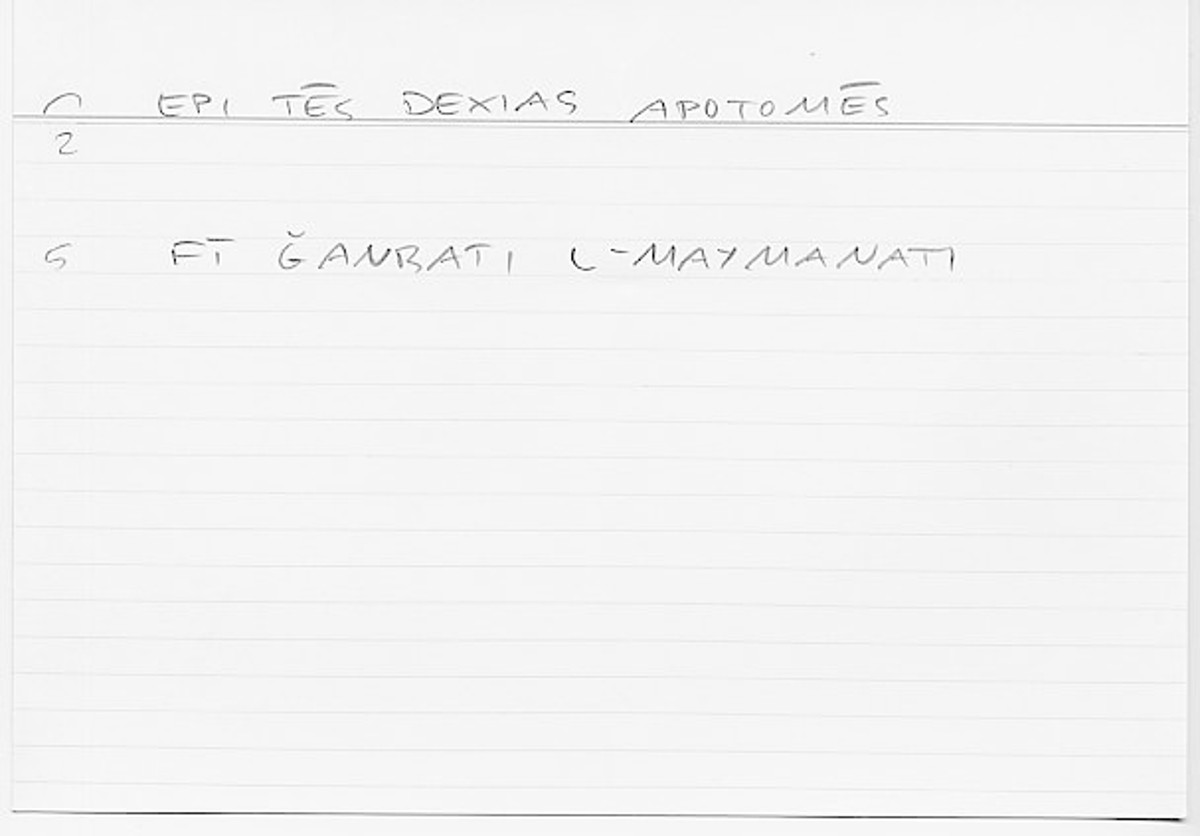 EPI TĒS DEXIAS APOTOMĒS
2
5 FĪ ǦANBATI L-MAYMANATI